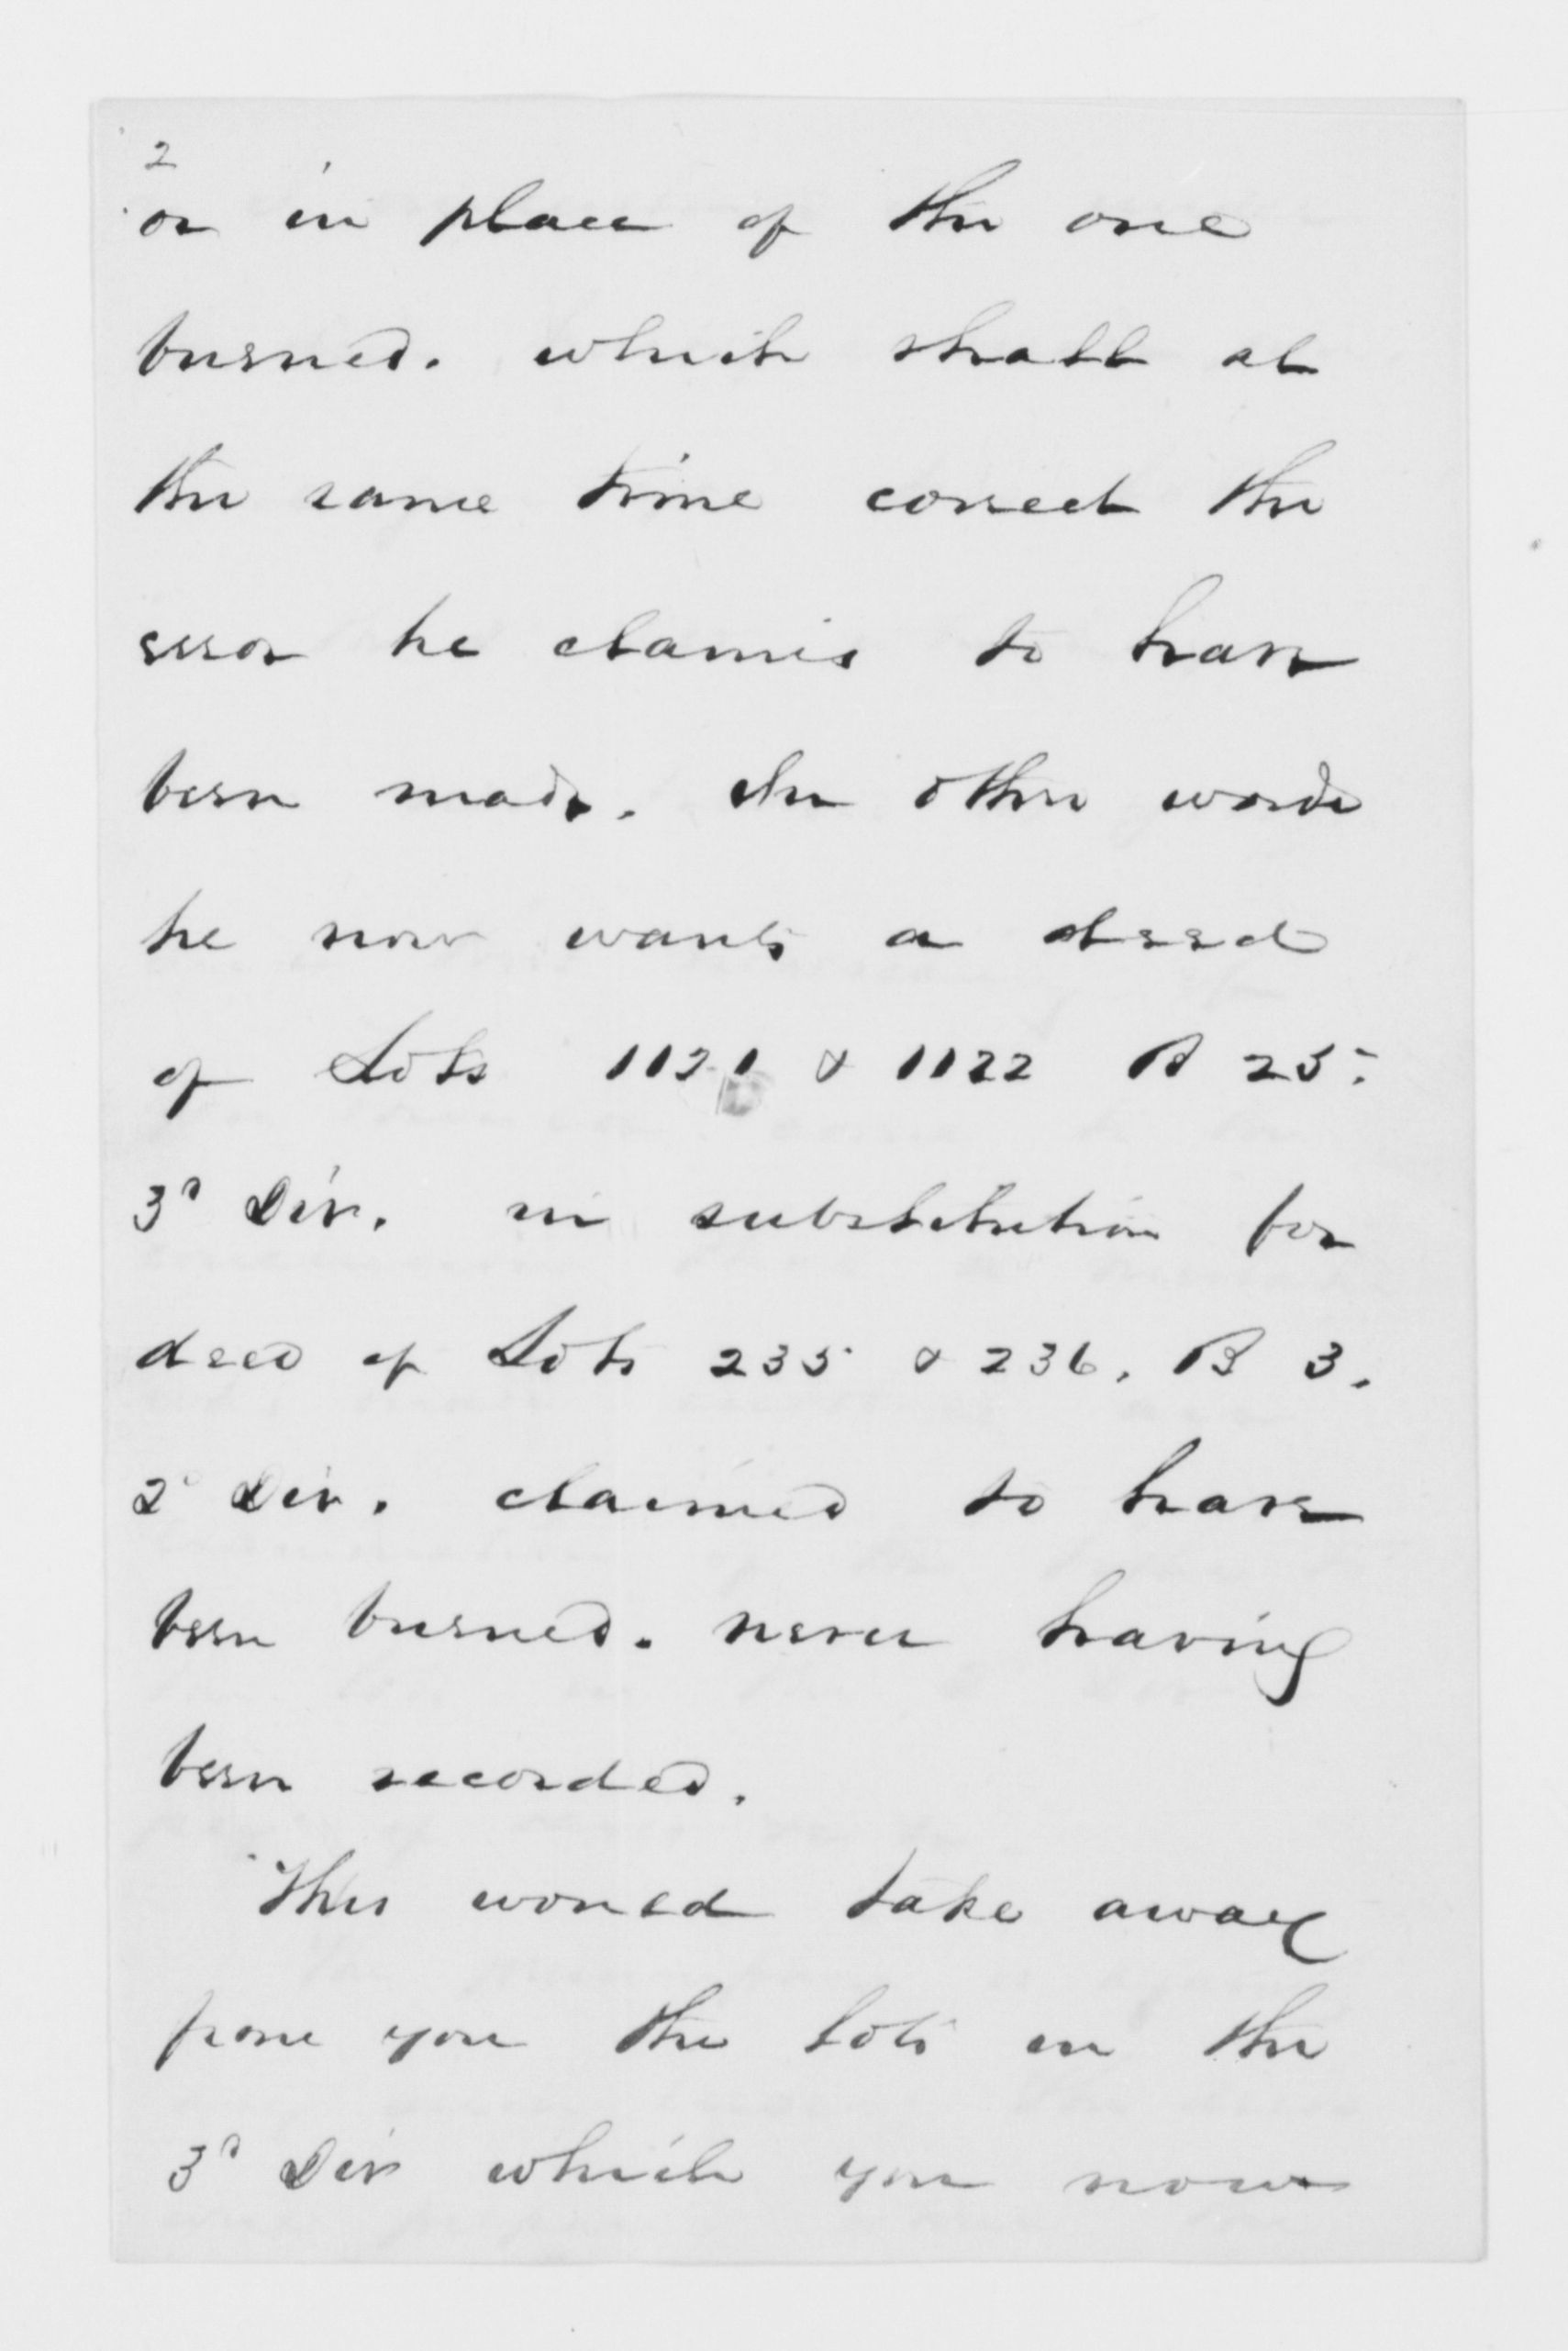 2
or in place of the one
burned. which shall at
the same time correct the
error he claims to have
been made. In other words
he now wants a deed
of Lots 1121 & 1122 B 25.
3d Div. in substitution for
deed of Lots 235 & 236. B 3.
2d Div. claimed to have
been burned. never having
been recorded.
This would take away
from you the lots in the
3d Div which you now